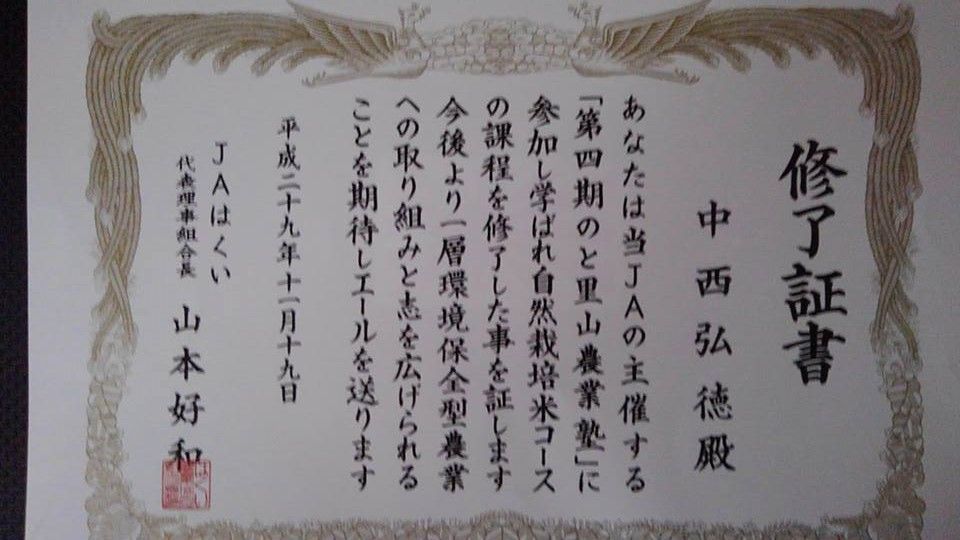 修了証書
中西弘徳殿
あなたは当JAの主催する
「第四期のと里山農業塾」に
参加し学ばれ自然栽培米コース
の課程を修了した事を証します
今後より一層環境保全型農業
への取り組みと志を広げられる
ことを期待しエールを送ります
平成二十九年十一月十九日
JAはくい
代表理事組合長 山本好和